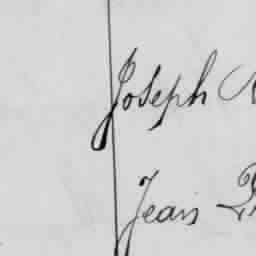 Joseph
Jean